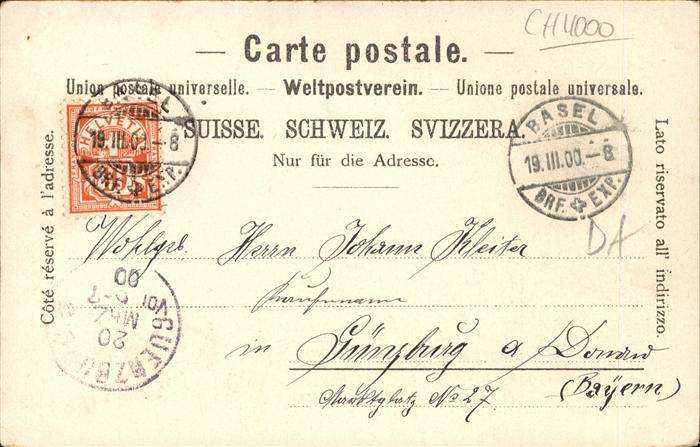 CH4000
Carte postale.
Union postale universelle. — Weltpostverein. — Unione postale universale.
SUISSE. SCHWEIZ. SVIZZERA.
Nur für die Adresse.
Côté réservé à l'adresse.
Lato riservato all' indirizzo.
HELVETIA
BASEL
19.III.00.–8
BRF. EXP.
BASEL
19.III.00.–8
BRF. EXP.
DA
Wohlgeb. Herrn Johann Kleiter
Kaufmann
in Günzburg a Donau
(Bayern)
Marktplatz No 27.
GUENZBURG
20
MRZ
00